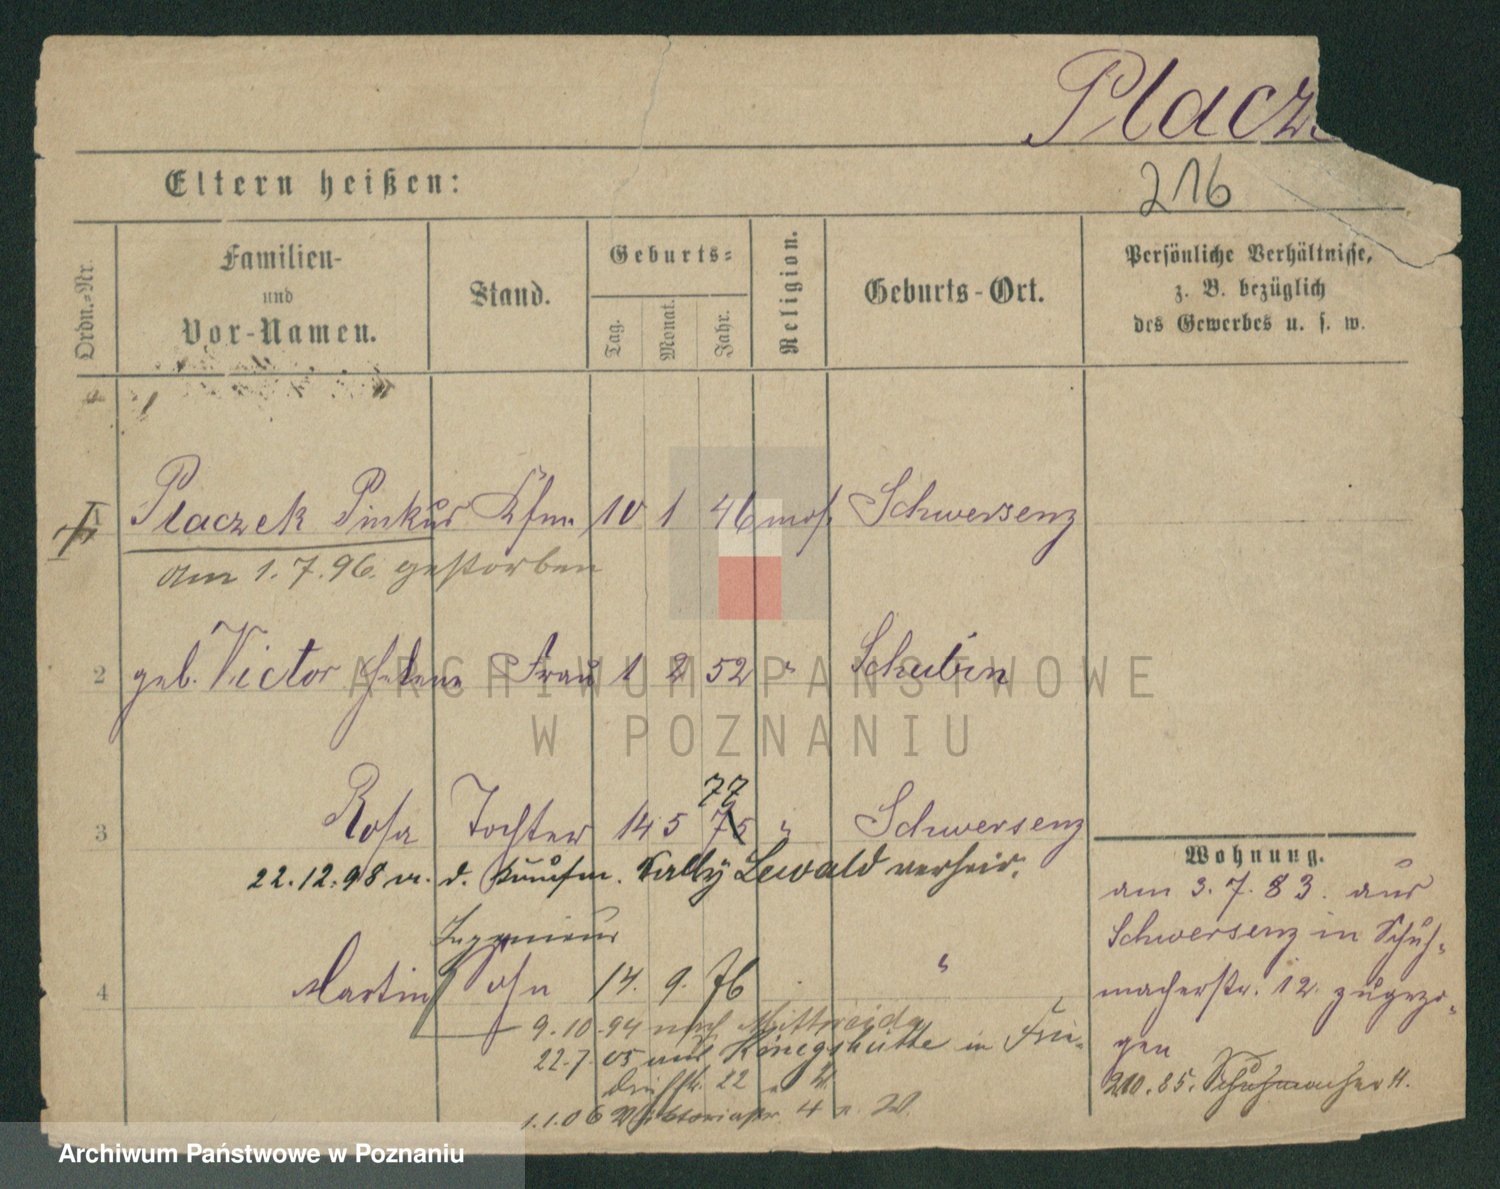 Placz
216
Eltern heißen:
Ordn.-Nr.
Familien-
und
Vor-Namen.
Stand.
Geburts-
Tag.
Monat.
Jahr.
Religion.
Geburts-Ort.
Persönliche Verhältnisse,
z. B. bezüglich
des Gewerbes u. s. w.
1 Placzek Pinkus Kfm. 10 1 46 mos. Schwersenz
am 1.7.96. gestorben
2 geb. Victor Helene Frau 1 2 52 " Schubin
77
3 Rosa Tochter 14 5 75 " Schwersenz
22.12.98 m. d. Kaufm. Sally Lewald verheir.
Ingenieur
4 Martin Sohn 14. 9. 76 "
9.10.94 nach Mittweida
22.7.05 aus Königshütte in Frie-
drichstr. 22 v. W.
1.1.06 Viktoriastr. 4 v. W.
Wohnung.
am 3.7.83. aus
Schwersenz in Schuh-
macherstr. 12. zugezo-
gen
2.10.85. Schuhmacher 11.
ARCHIWUM PAŃSTWOWE
W POZNANIU
Archiwum Państwowe w Poznaniu